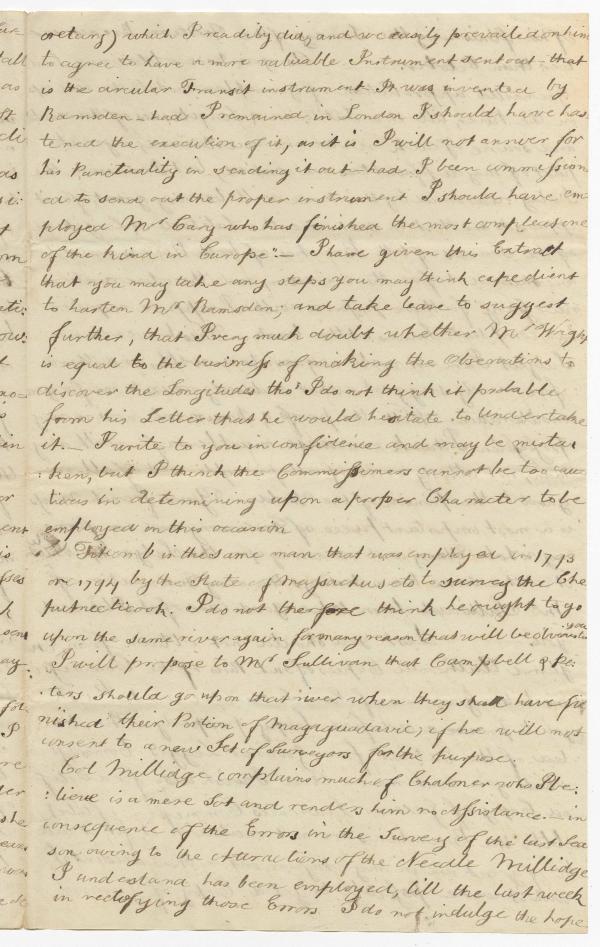 cretary) which I readily did, and we easily prevailed on him
to agree to have a more valuable Instrument sent out – that
is the circular Transit instrument It was invented by
Ramsden – had I remained in London I should have has
tened the execution of it, as it is I will not answer for
his Punctuality in sending it out – had I been commission
ed to send out the proper instrument I should have em
ployed Mr Cary who has finished the most compleat one
of the kind in Europe". – I have given this Extract
that you may take any steps you may think expedient
to hasten Mr Ramsden; and take leave to suggest
further, that I very much doubt whether Mr Wright
is equal to the business of making the Observations to
discover the Longitudes tho' I do not think it probable
from his Letter that he would hesitate to undertake
it. – I write to you in confidence and may be mista
:ken, but I think the Commissioners cannot be too cau
tious in determining upon a proper Character to be
employed on this occasion
Titcomb is the same man that was employed in 1793
or 1794 by the State of Massachusetts to survey the Che
putnecticook. I do not therefore think he ought to go
upon the same river again for many reason that will be obvious to you
I will propose to Mr Sullivan that Campbell & Pe:
:ters should go upon that river when they shall have fi
nished their Portion of Magaguadavic; if he will not
consent to a new Set of Surveyors for the purpose.
Col Millidge complains much of Chaloner who I be:
:lieve is a mere Sot and renders him no Assistance – in
consequence of the Errors in the Survey of the last Sea
son owing to the Attractions of the Needle Millidge
I understand has been employed, till the last week
in rectifying those Errors I do not indulge the hope